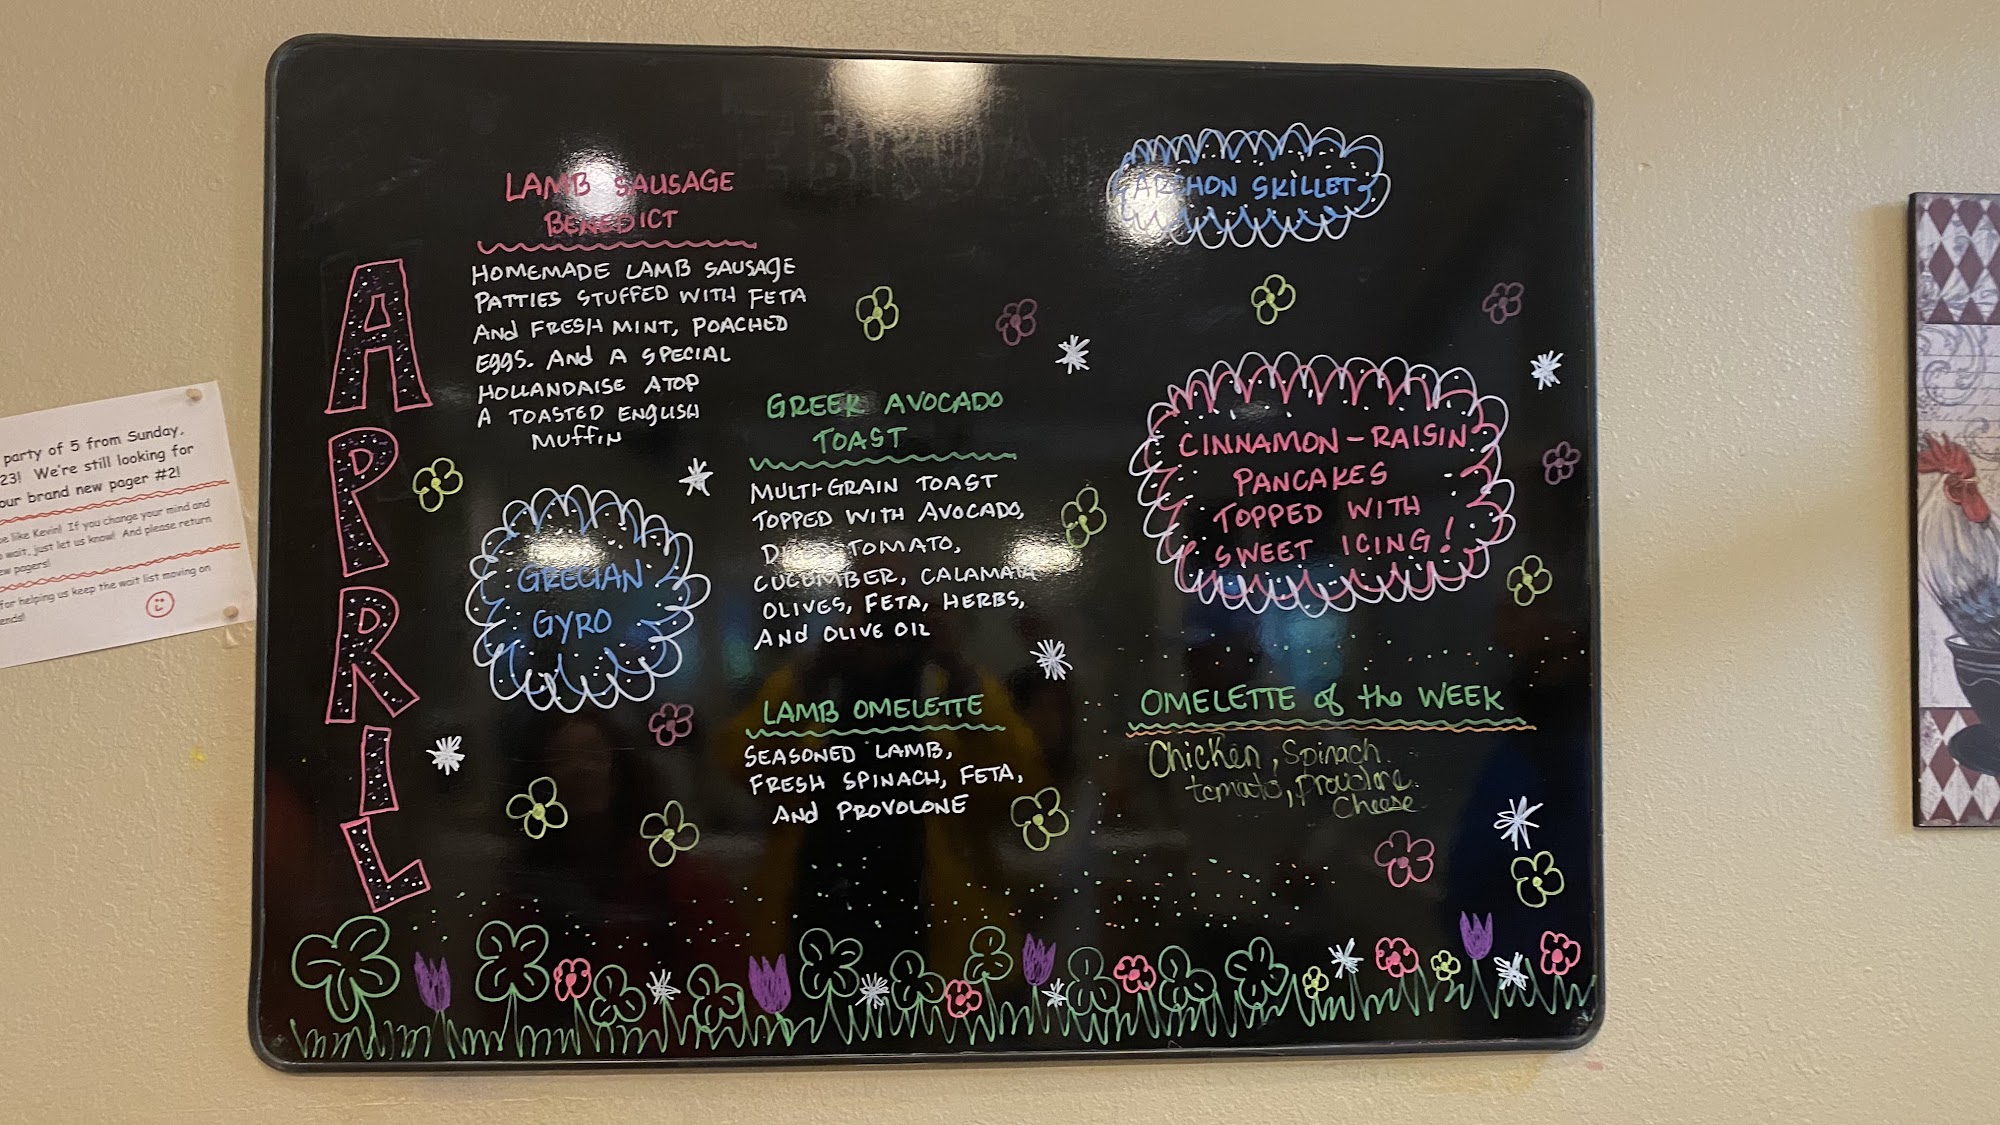 APRIL
LAMB SAUSAGE
BENEDICT
HOMEMADE LAMB SAUSAGE
PATTIES STUFFED WITH FETA
And FRESH MINT, POACHED
Eggs. And A SPECIAL
HOLLANDAISE ATOP
A TOASTED ENGLISH
MUFFIN
GRECIAN
GYRO
GREEK AVOCADO
TOAST
MULTI-GRAIN TOAST
TOPPED WITH AVOCADO,
TOMATO,
CUCUMBER, CALAMATA
OLIVES, FETA, HERBS,
And OLIVE OIL
LAMB OMELETTE
SEASONED LAMB,
FRESH SPINACH, FETA,
And PROVOLONE
ARCHON SKILLET
CINNAMON-RAISIN
PANCAKES
TOPPED WITH
SWEET ICING!
OMELETTE of the WEEK
Chicken, Spinach
tomato, provolone
Cheese
party of 5 from Sunday,
23! We're still looking for
our brand new pager #2!
be like Kevin! If you change your mind and
wait, just let us know! And please return
ew pagers!
for helping us keep the wait list moving on
ends!